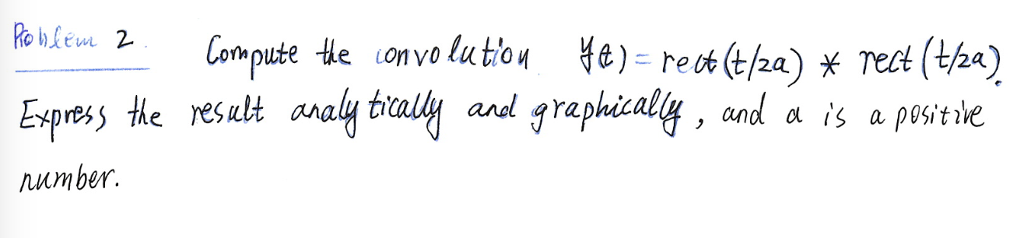 Problem 2.
Compute the convolution y(t) = rect(t/2a) * rect(t/2a).
Express the result analytically and graphically, and a is a positive
number.